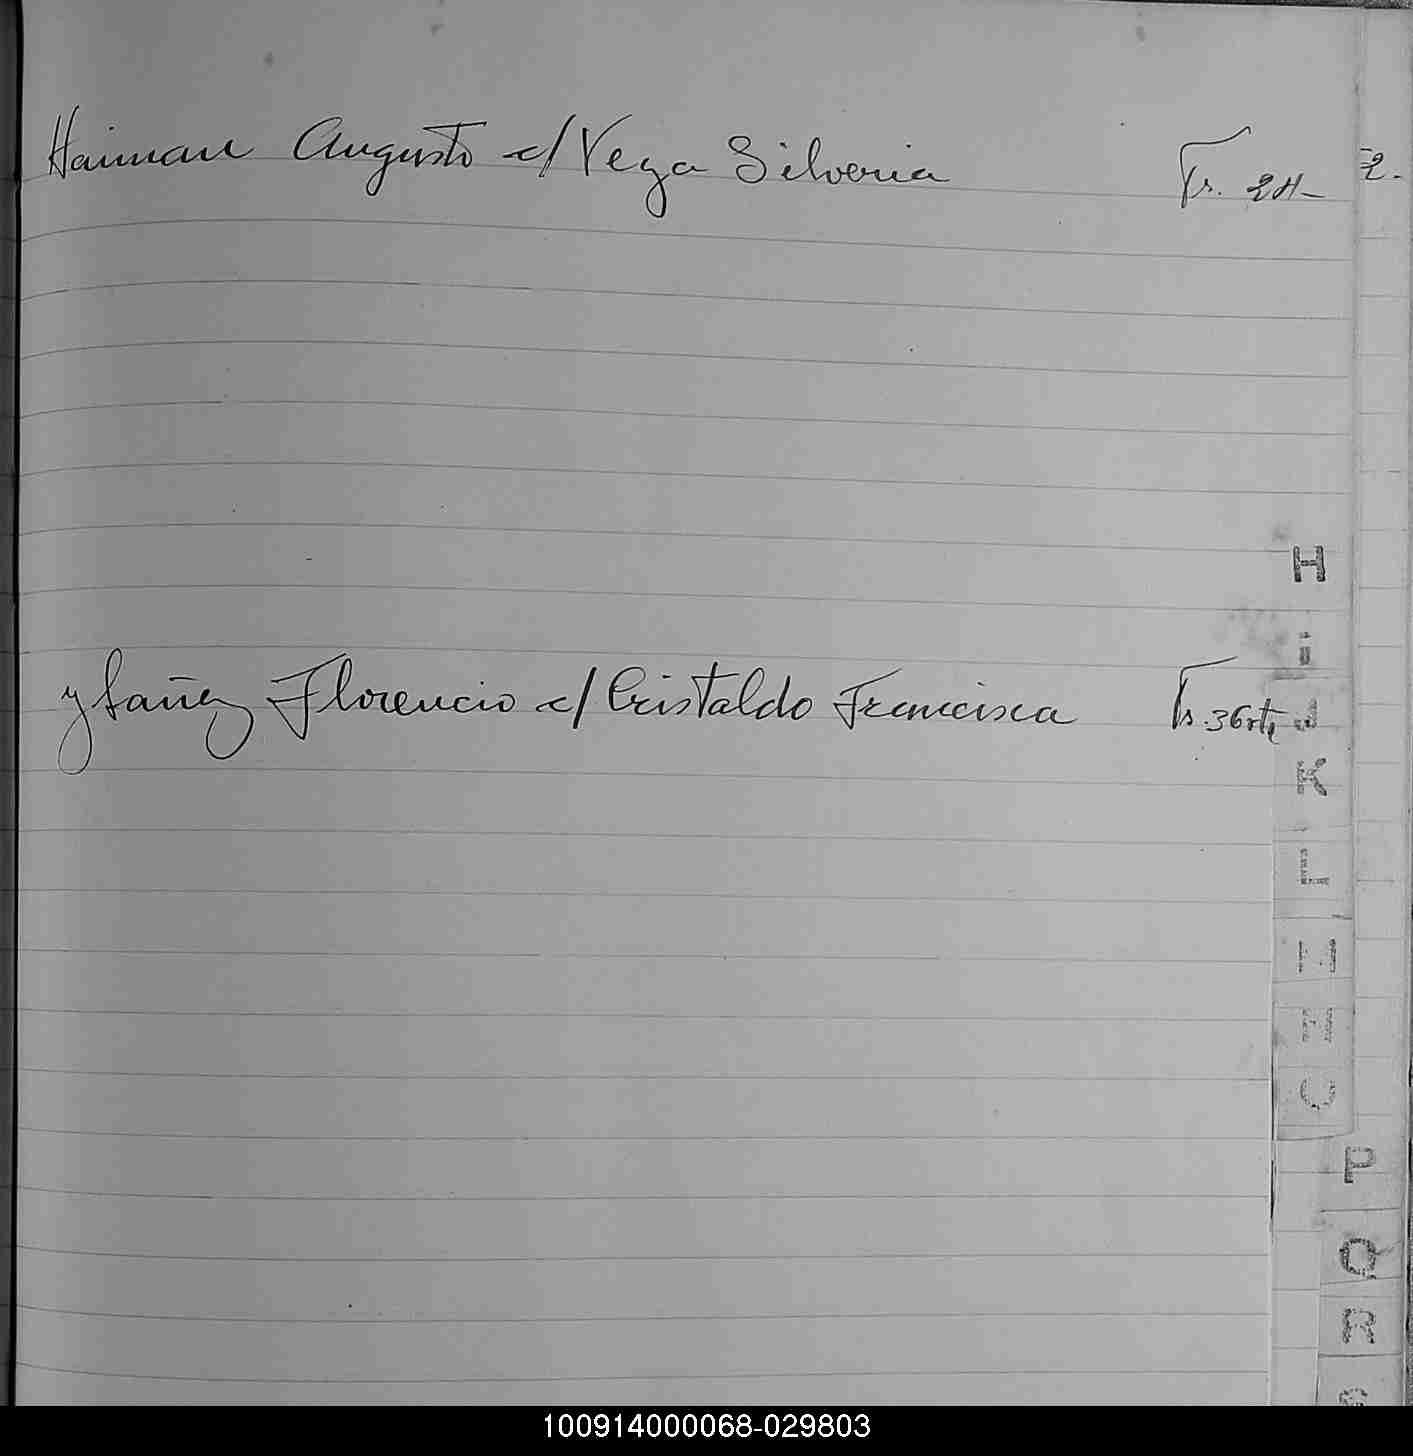 Haiman Augusto c/ Vega Silveria Fs. 24-
2.
H
I
Ybañez Florencio c/ Cristaldo Francisca Fs. 36 vta
J
K
L
M
N
O
P
Q
R
100914000068-029803